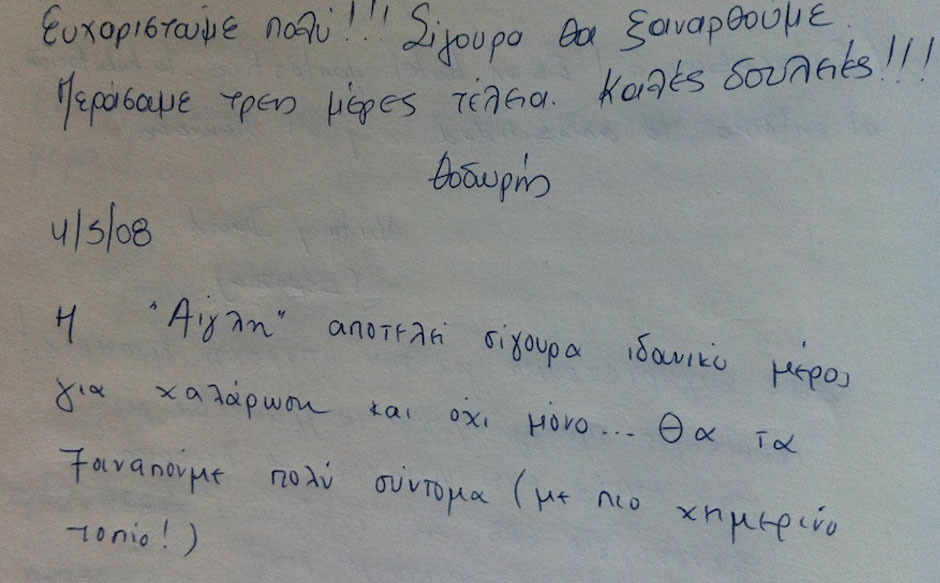 Ευχαριστούμε πολύ!!! Σίγουρα θα ξαναρθούμε.
Περάσαμε τρεις μέρες τέλεια. Καλές δουλειές!!!
Θοδωρής
4/5/08
Η "Αίγλη" αποτελεί σίγουρα ιδανικό μέρος
για χαλάρωση και όχι μόνο... Θα τα
ξαναπούμε πολύ σύντομα (με πιο χημερινό
τοπίο!)